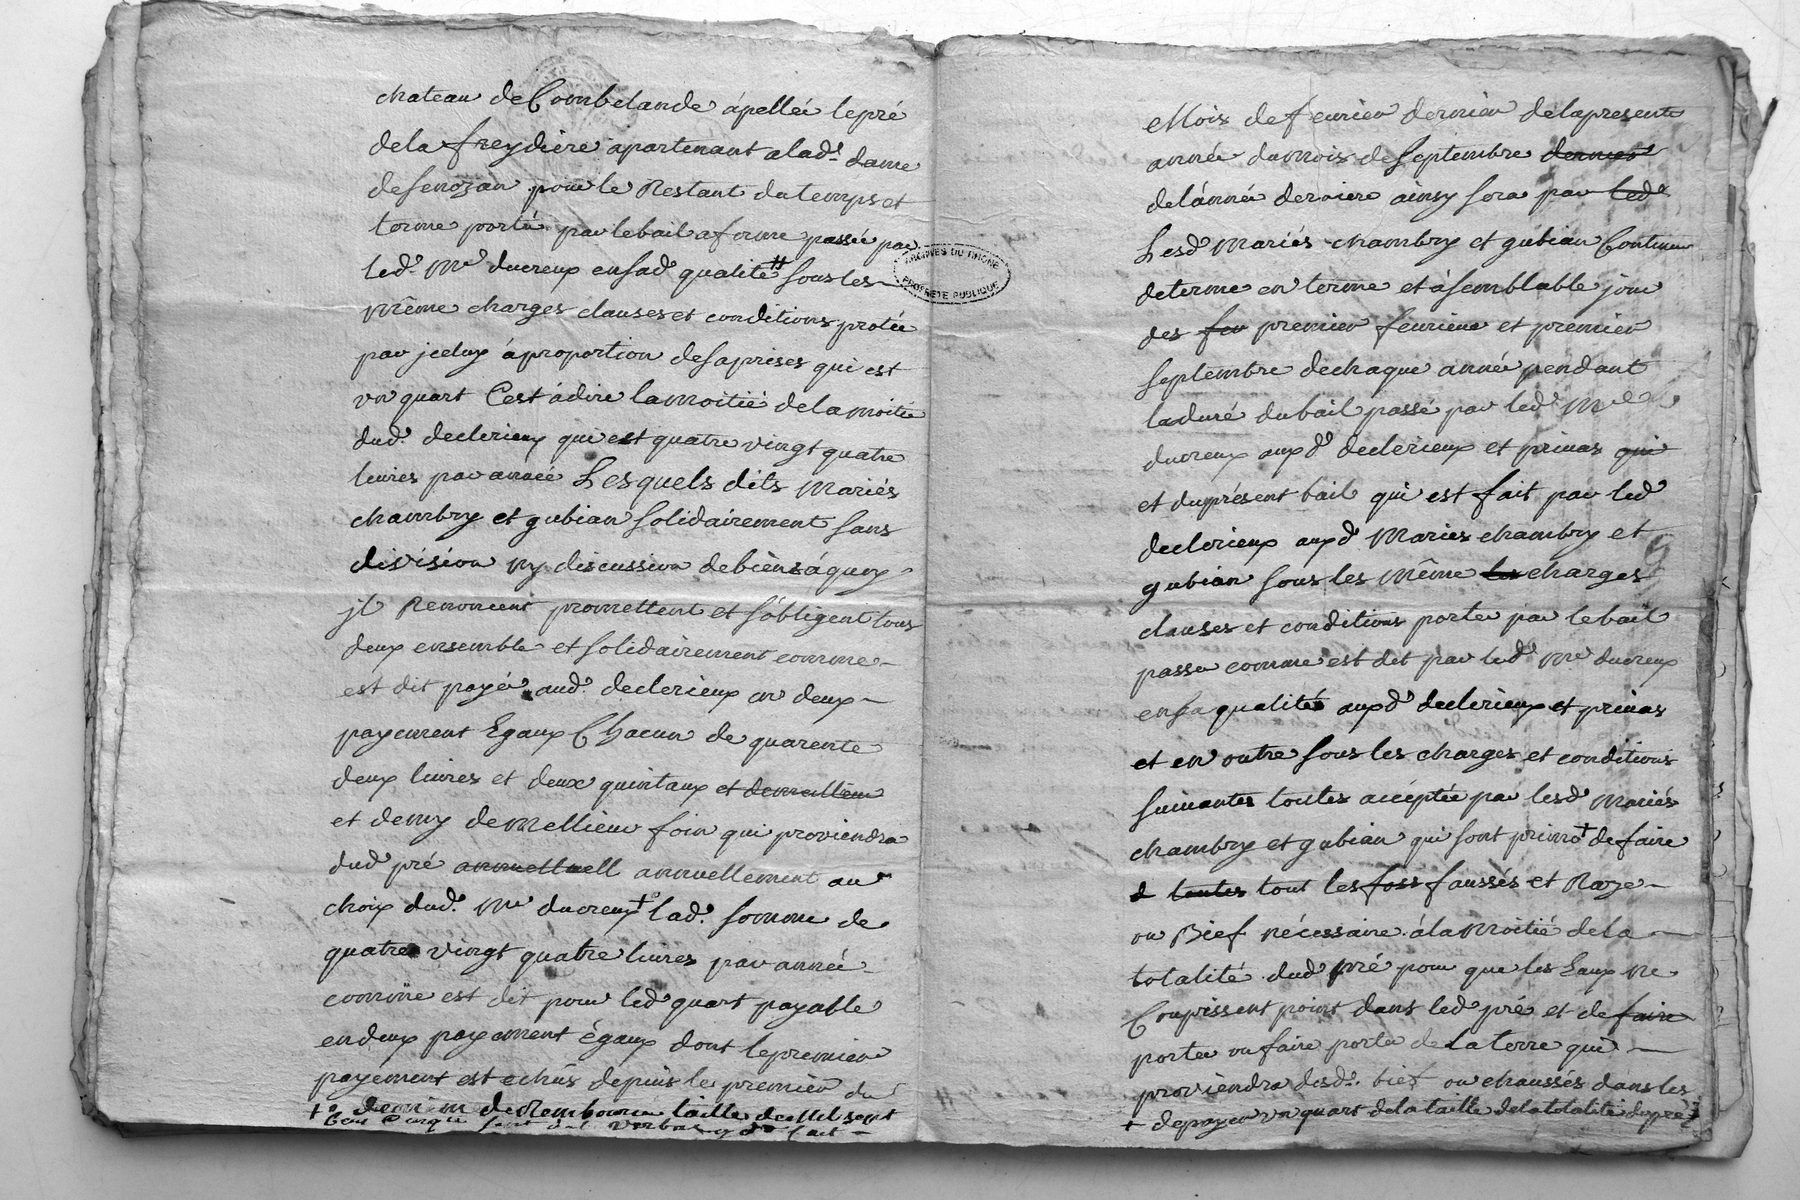 chateau de Combelande apellée le pré
de la freydiere apartenant a lad. dame
de Senozan pour le Restant du temps et
terme porté par le bail a ferme passée par
led. Me ducreux en sad. qualité # sous les
même charges clauses et conditions protée
par jceluy à proportion de sa prises qui est
un quart C'est à dire la moitié de la moitié
dud. declerieux qui est quatre vingt quatre
livres par année Les quels dits mariés
chambry et gubian solidairement sans
division ny discussion de biens à quoy
jl Renoncent promettent et s'obligent tous
deux ensemble et solidairement comme
est dit payé aud. declerieux en deux
payement Egaux Chacun de quarente
deux livres et deux quintaux et
et demy de mellieur foin qui proviendra
dud pré annuellement au
choix dud. Me ducreux + lad. somme de
quatre vingt quatre livres par année
comme est dit pour led quart payable
en deux payement égaux dont le premier
payement est echus depuis le premier du
ARCHIVES DU RHONE
PROPRIÉTÉ PUBLIQUE
Mois de fevrier dernier de la presente
année du mois de Septembre dernier
de l'année derniere ainsy sera par led
Lesd mariés chambry et gubian Continuer
de terme en terme et à semblable jour
des fev premier fevrier et premier
Septembre de chaque année pendant
la duré du bail passé par led Me
ducreux auxd declerieux et prinas qui
et du présent bail qui est fait par led
declerieux auxd Maries chambry et
gubian sous les même les charges
clauses et conditions portée par le bail
passer comme est dit par led Me ducreux
en sa qualité auxd declerieux et prinas
et en outre sous les charges et conditions
suivantes toutes accéptée par lesd mariés
chambry et gubian qui sont primo + de faire
toutes tout les foss faussés et Raze
ou Bief nécessaire à la moitié de la
totalité dud pré pour que les Eaux ne
Coupissent point dans led pré et de faire
porter ou faire porter de La terre qui
proviendra desd. bief ou chaussés dans les
+ de payer un quart de la taille de la totalité du pré